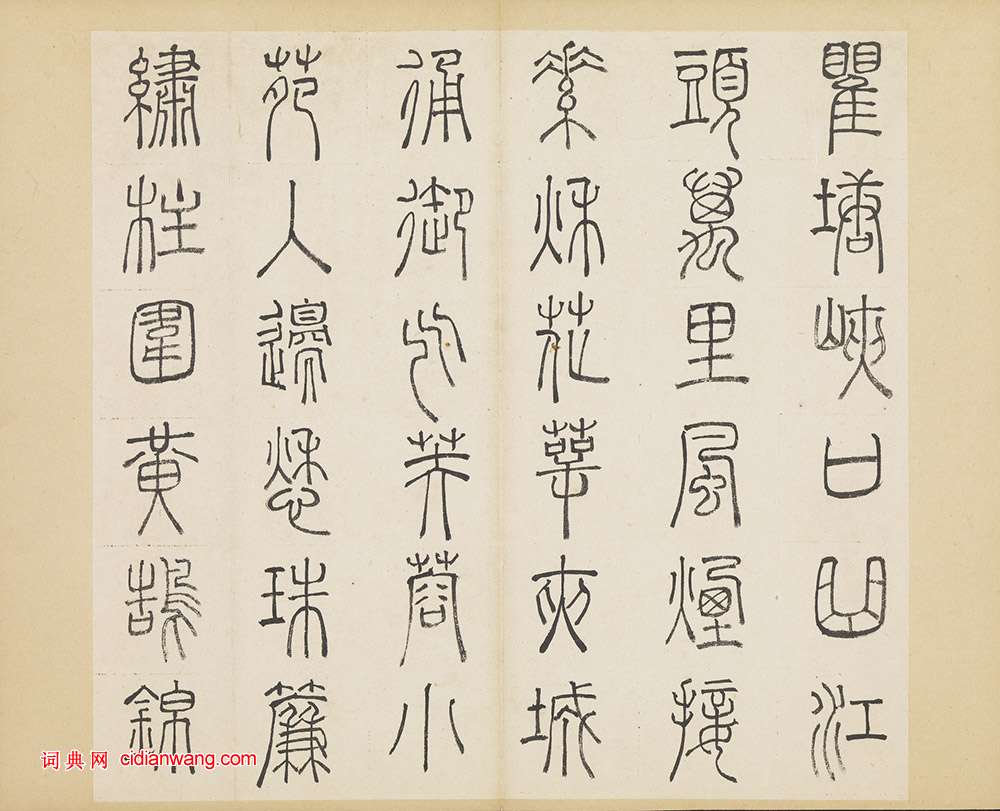 瞿塘峽口曲江
頭萬里風煙接
素秋花萼夾城
通御气芙蓉小
苑入邊愁珠簾
繡柱圍黃鵠錦
词典网 cidianwang.com